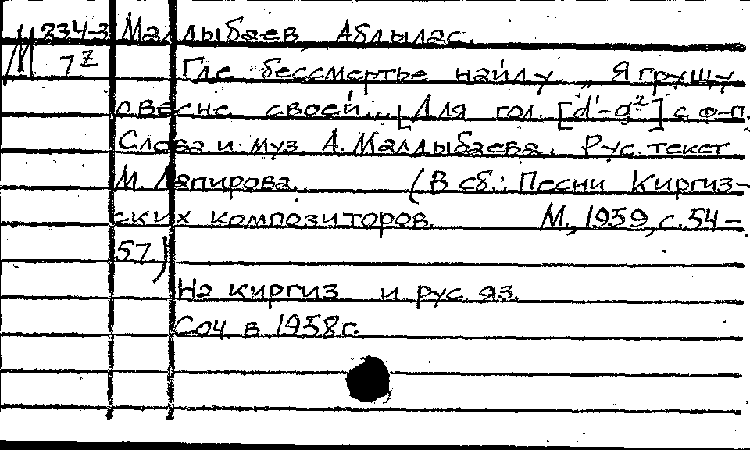 М 234-3 Малдыбаев, Абдылас.
7 Где бессмертье найду... Я грущу
о весне своей... [Для гол. [d¹-g²] с ф-п.
Слова и муз. А. Малдыбаева. Рус. текст
М. Лапирова. (В сб.: Песни Киргиз-
ских композиторов. М., 1959, с. 54-
57)
На киргиз. и рус. яз.
Соч. в 1958 г.